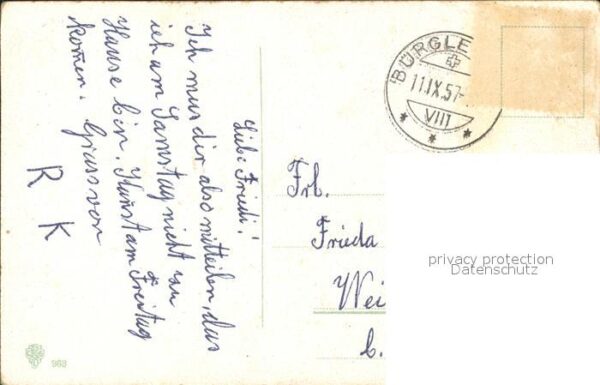 Liebi Friedi!
Ich mus dir also mitteilen, das
ich am Samstag nicht zu
Hause bin. Kanst am Freitag
komen. Gruss von
R K
BÜRGLE
11.IX.57-
VIII
Frl.
Frieda
Wei
b.
privacy protection
Datenschutz
963